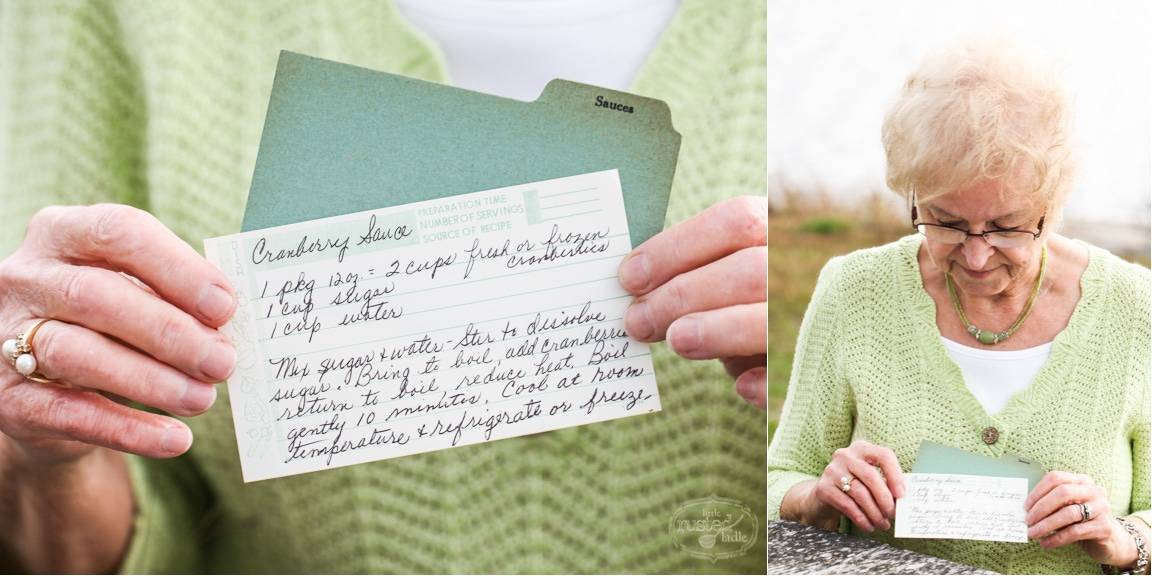 Sauces
PREPARATION TIME
NUMBER OF SERVINGS
SOURCE OF RECIPE
Cranberry Sauce
1 pkg 12oz = 2 cups fresh or frozen
cranberries
1 cup sugar
1 cup water
Mix sugar & water - Stir to dissolve
sugar. Bring to boil, add cranberries
return to boil, reduce heat. Boil
gently 10 minutes. Cool at room
temperature & refrigerate or freeze.
little
rusted
ladle